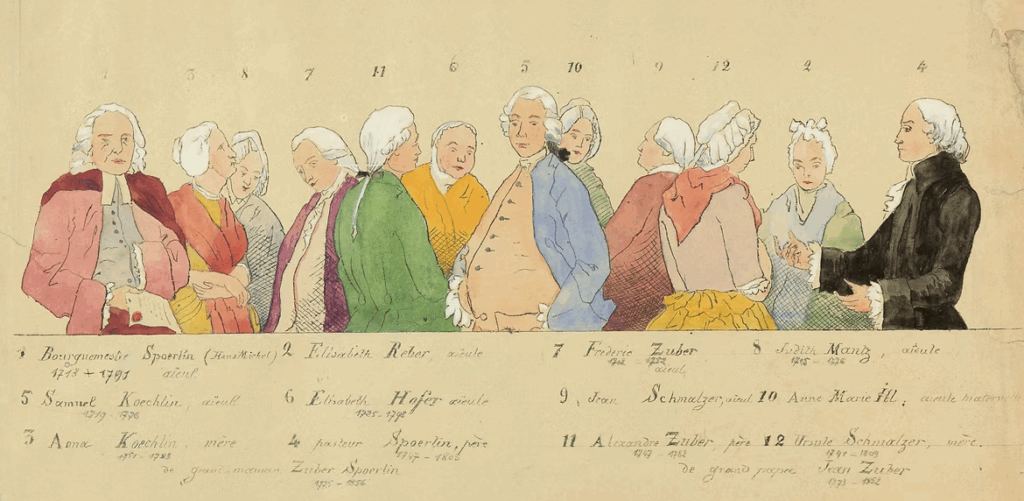 1 3 8 7 11 6 5 10 9 12 2 4
1 Bourguemestre Spoerlin (Hans Michel) 2 Elisabeth Reber, aïeule 7 Frederic Zuber 8 Judith Mantz, aïeule
1713 + 1791 aïeul aïeul
5 Samuel Koechlin, aïeul 6 Elisabeth Hofer aïeule 9, Jean Schmalzer, aïeul 10 Anne Marie Ill; aieule
1719 - 1776
3 Anna Koechlin mère 4 pasteur Spoerlin, père 11 Alexandre Zuber, père 12 Ursule Schmalzer, mère.
1741 - 1809
de grand-maman Zuber Spoerlin de grand papa Jean Zuber
1775 - 1856 1773 - 1852